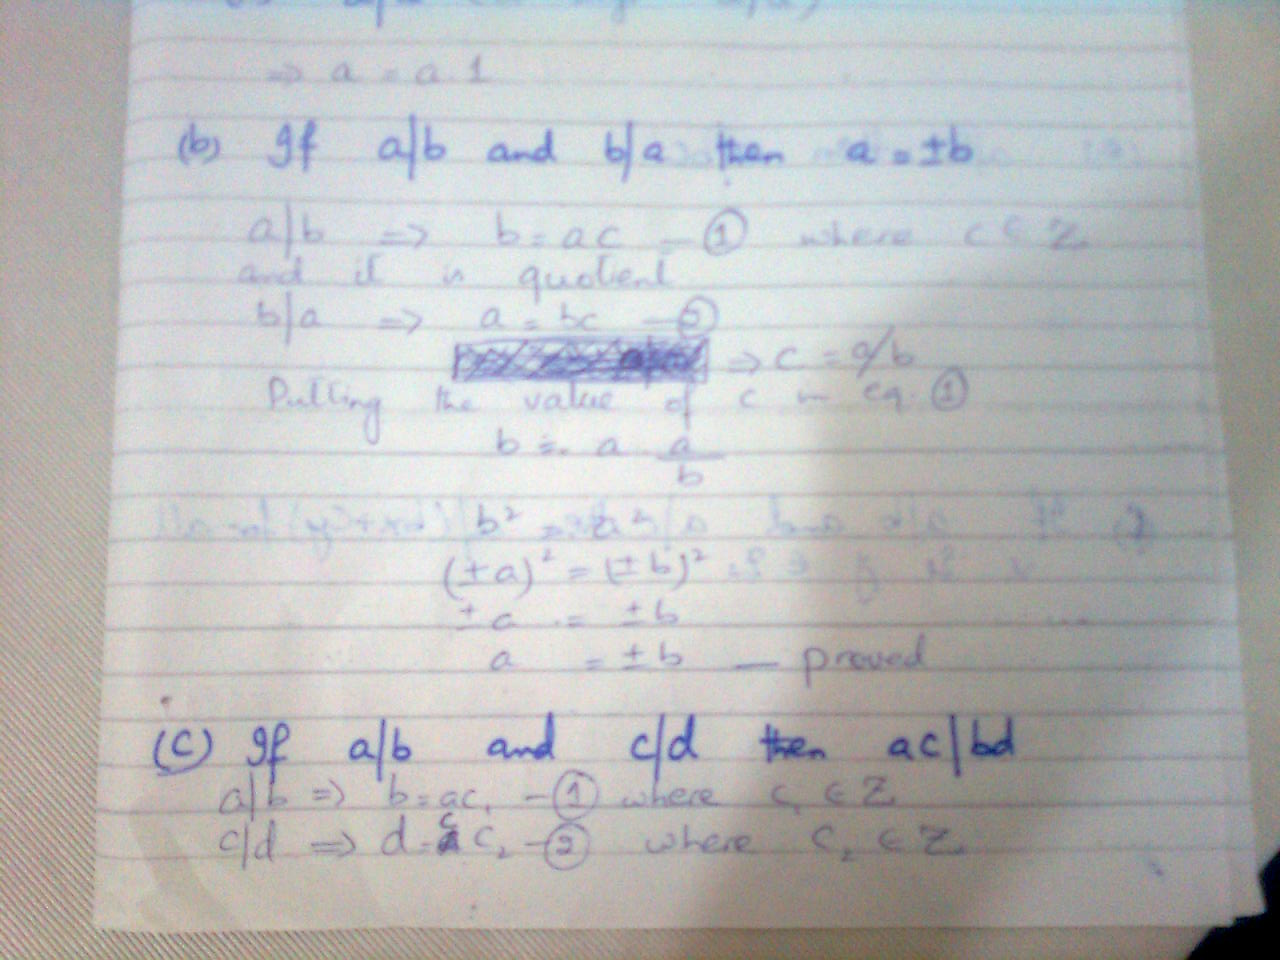 ⇒ a = a.1
(b) If a|b and b|a then a = ±b
a|b ⇒ b = ac — ① where c ∈ Z
and it is quotient
b|a ⇒ a = bc — ②
⇒ c = a/b
Putting the value of c in eq. ①
b = a a/b
b² = a²
(±a)² = (±b)²
±a = ±b
a = ±b — proved
(c) If a|b and c|d then ac|bd
a|b ⇒ b = ac₁ — ① where c₁ ∈ Z
c|d ⇒ d = c c₂ — ② where c₂ ∈ Z